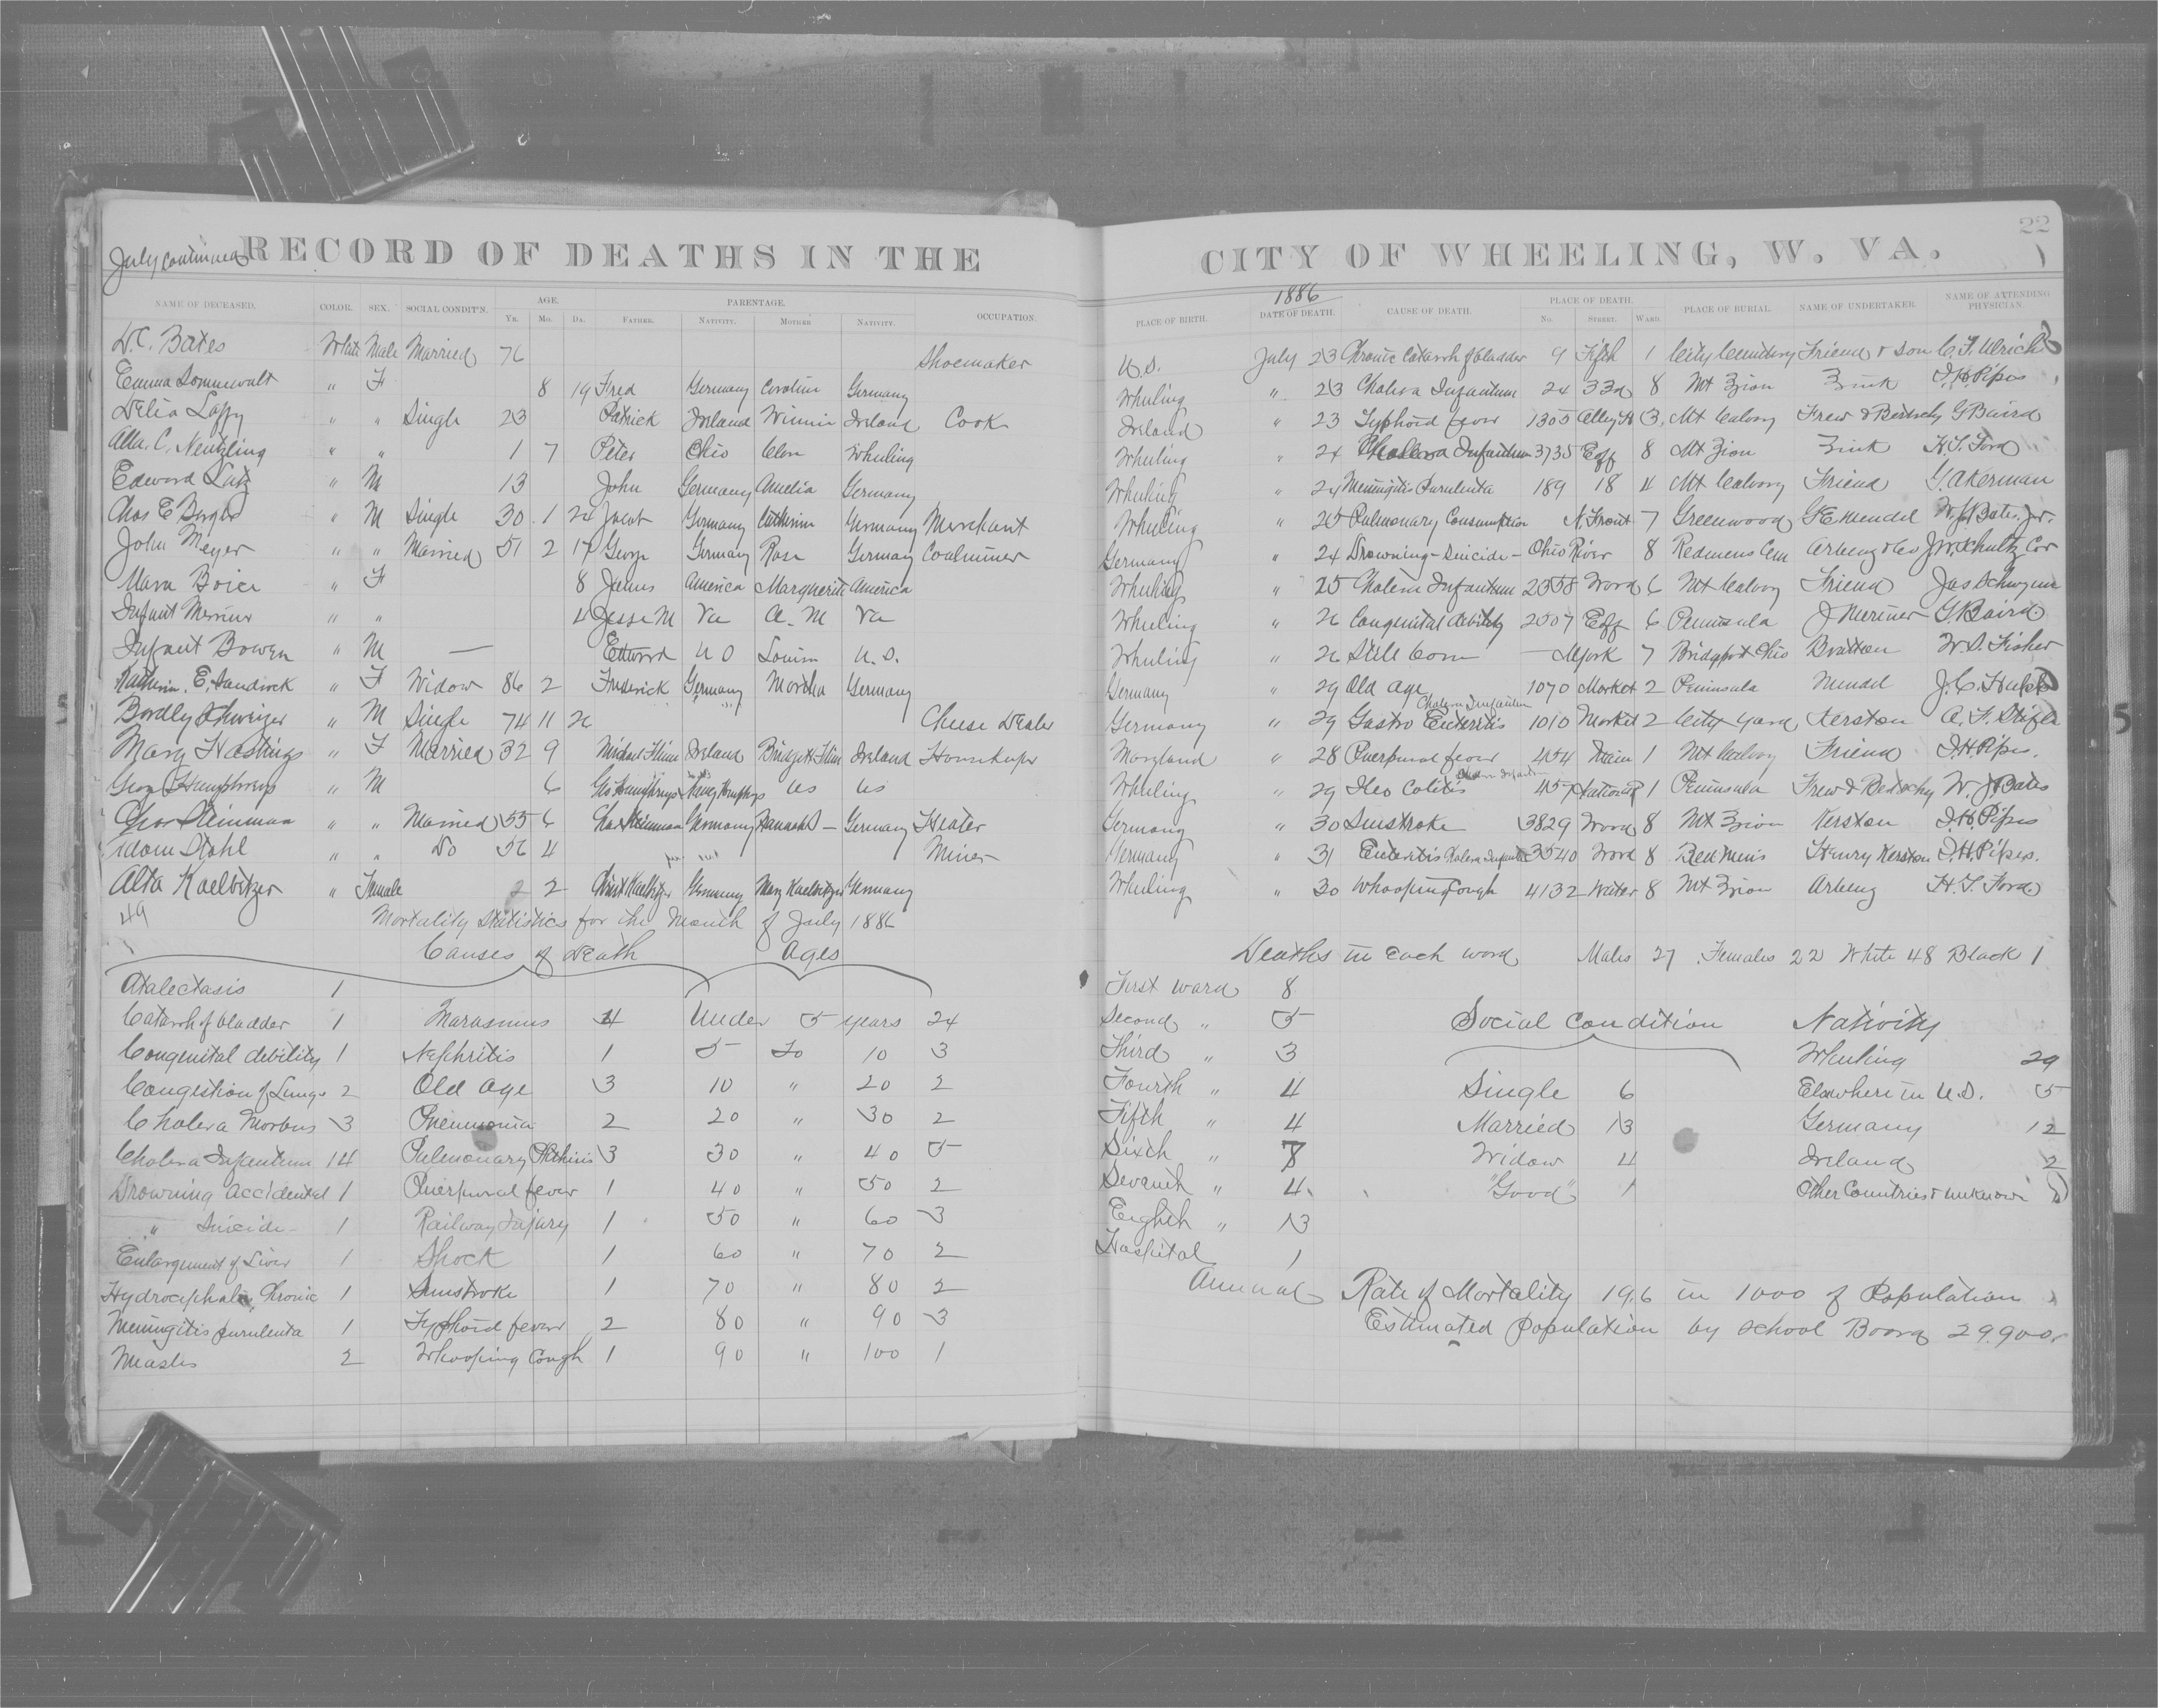 22
July continued RECORD OF DEATHS IN THE CITY OF WHEELING, W. VA.
1886
NAME OF DECEASED. COLOR. SEX. SOCIAL CONDIT'N. AGE. PARENTAGE. OCCUPATION. PLACE OF BIRTH. DATE OF DEATH. CAUSE OF DEATH. PLACE OF DEATH. PLACE OF BURIAL. NAME OF UNDERTAKER. NAME OF ATTENDING PHYSICIAN.
YR. MO. DA. FATHER. NATIVITY. MOTHER NATIVITY. NO. STREET. WARD.
D.C. Bates White Male Married 76 Shoemaker U.S. July 23 Chronic Catarrh of bladder 9 Fifth 1 City Cemetery Friend & Son C.F. Ulrich
Emma " F 8 19 Fred Germany Caroline Germany Wheeling " 23 Cholera Infantum 24 33d 8 Mt Zion Zink J.H. Pipes
Delia Laffy " " Single 23 Patrick Ireland Winnie Ireland Cook Ireland " 23 Typhoid fever 1305 Alley H 3 Mt Calvary Frew & Bertschy G Baird
Alla. C. Neutzling " " 1 7 Peter Ohio Clara Wheeling Wheeling " 24 Cholera Infantum 3735 Eoff 8 Mt Zion Zink H.T. Ford
Edward Lutz " M 13 John Germany Amelia Germany Wheeling " 24 Meningitis Purulenta 189 18 4 Mt Calvary Friend G. Akerman
Chas E Berger " M Single 30 1 24 Jacob Germany Catherine Germany Merchant Wheeling " 25 Pulmonary Consumption N. Front 7 Greenwood G E Mendel W. J Bates Jr.
John Meyer " " Married 51 2 17 George Germany Rosa Germany Coalminer Germany " 24 Drowning - Suicide - Ohio River 8 Redmens Cem Arbenz & Co J W. Schultz Cor
Mara Boice " F 8 James America Marguerite America Wheeling " 25 Cholera Infantum 2358 Wood 6 Mt Calvary Friend Jas Schwynn
Infant Meriner " " 4 Jesse M Va A. M Va Wheeling " 26 Congenital debility 2507 Eoff 6 Peninsula J Meriner G. Baird
Infant Bowen " M — Edward U S Louisa U.S. Wheeling " 26 Still born — York 7 Bridgport Ohio Bratton W.S. Fisher
Katherin. E. " F Widow 86 2 Frederick Germany Martha Germany Germany " 29 Old age 1070 Market 2 Peninsula Mendel J.C. Hupp
Bordly Schweizer " M Single 74 11 26 Cheese Dealer Germany " 29 Gastro Enteritis Cholera Infantum 1010 Market 2 City Yard Kerston A. F. Stifel
Mary Hastings " F Married 32 9 Michael Flinn Ireland Bridgett Flinn Ireland Housekeeper Maryland " 28 Puerpural fever 454 Main 1 Mt Calvary Friend J.H. Pipes.
Geo Humphreys " M 6 Geo Humphreys Nancy Humphreys US US Wheeling " 29 Ileo Colitis 457 National 1 Peninsula Frew & Bertschy W. J Bates
Chas Steinman " " Married 55 6 Chas Steinman Germany Hannah S — Germany Heater Germany " 30 Sunstroke 3829 Wood 8 Mt Zion Kerston J.H. Pipes
Adam Stahl " " Do 56 4 Miner Germany " 31 Enteritis 3540 Wood 8 Red Mens Henry Kerston J.H. Pipes.
Alta Kaelbitzer " Female 2 2 Christ Kaelbitzer Germany Mary Kaelbitzer Germany Wheeling " 30 Whooping Cough 4132 Water 8 Mt Zion Arbenz H. T. Ford
49 Mortality Statistics for the Month of July 1886
Causes of Death Ages
Atalectasis 1
Catarrh of bladder 1 Marasmus 4 Under 5 years 24
Congenital debility 1 Nephritis 1 5 to 10 3
Congestion of Lungs 2 Old age 3 10 " 20 2
Cholera Morbus 3 Pneumonia 2 20 " 30 2
Cholera Infantum 14 Pulmonary Phthisis 3 30 " 40 5
Drowning accidental 1 Puerpural fever 1 40 " 50 2
" Suicide 1 Railway Injury 1 50 " 60 3
Enlargement of Liver 1 Shock 1 60 " 70 2
Hydrocephalis, Chronic 1 Sunstroke 1 70 " 80 2
Meningitis purulenta 1 Typhoid fever 2 80 " 90 3
Measles 2 Whooping Cough 1 90 " 100 1
Deaths in each ward Males 27 Females 22 White 48 Black 1
First ward 8
Second " 5 Social Condition Nativity
Third " 3 Wheeling 29
Fourth " 4 Single 6 Elsewhere in U.S. 5
Fifth " 4 Married 13 Germany 12
Sixth " 7 Widow 4 Ireland 2
Seventh " 4 "Good" 1 Other Countries & unknown
Eighth " 13
Hospital 1
Annual Rate of Mortality 19.6 in 1000 of Population
Estimated population by school Board 29.900
5